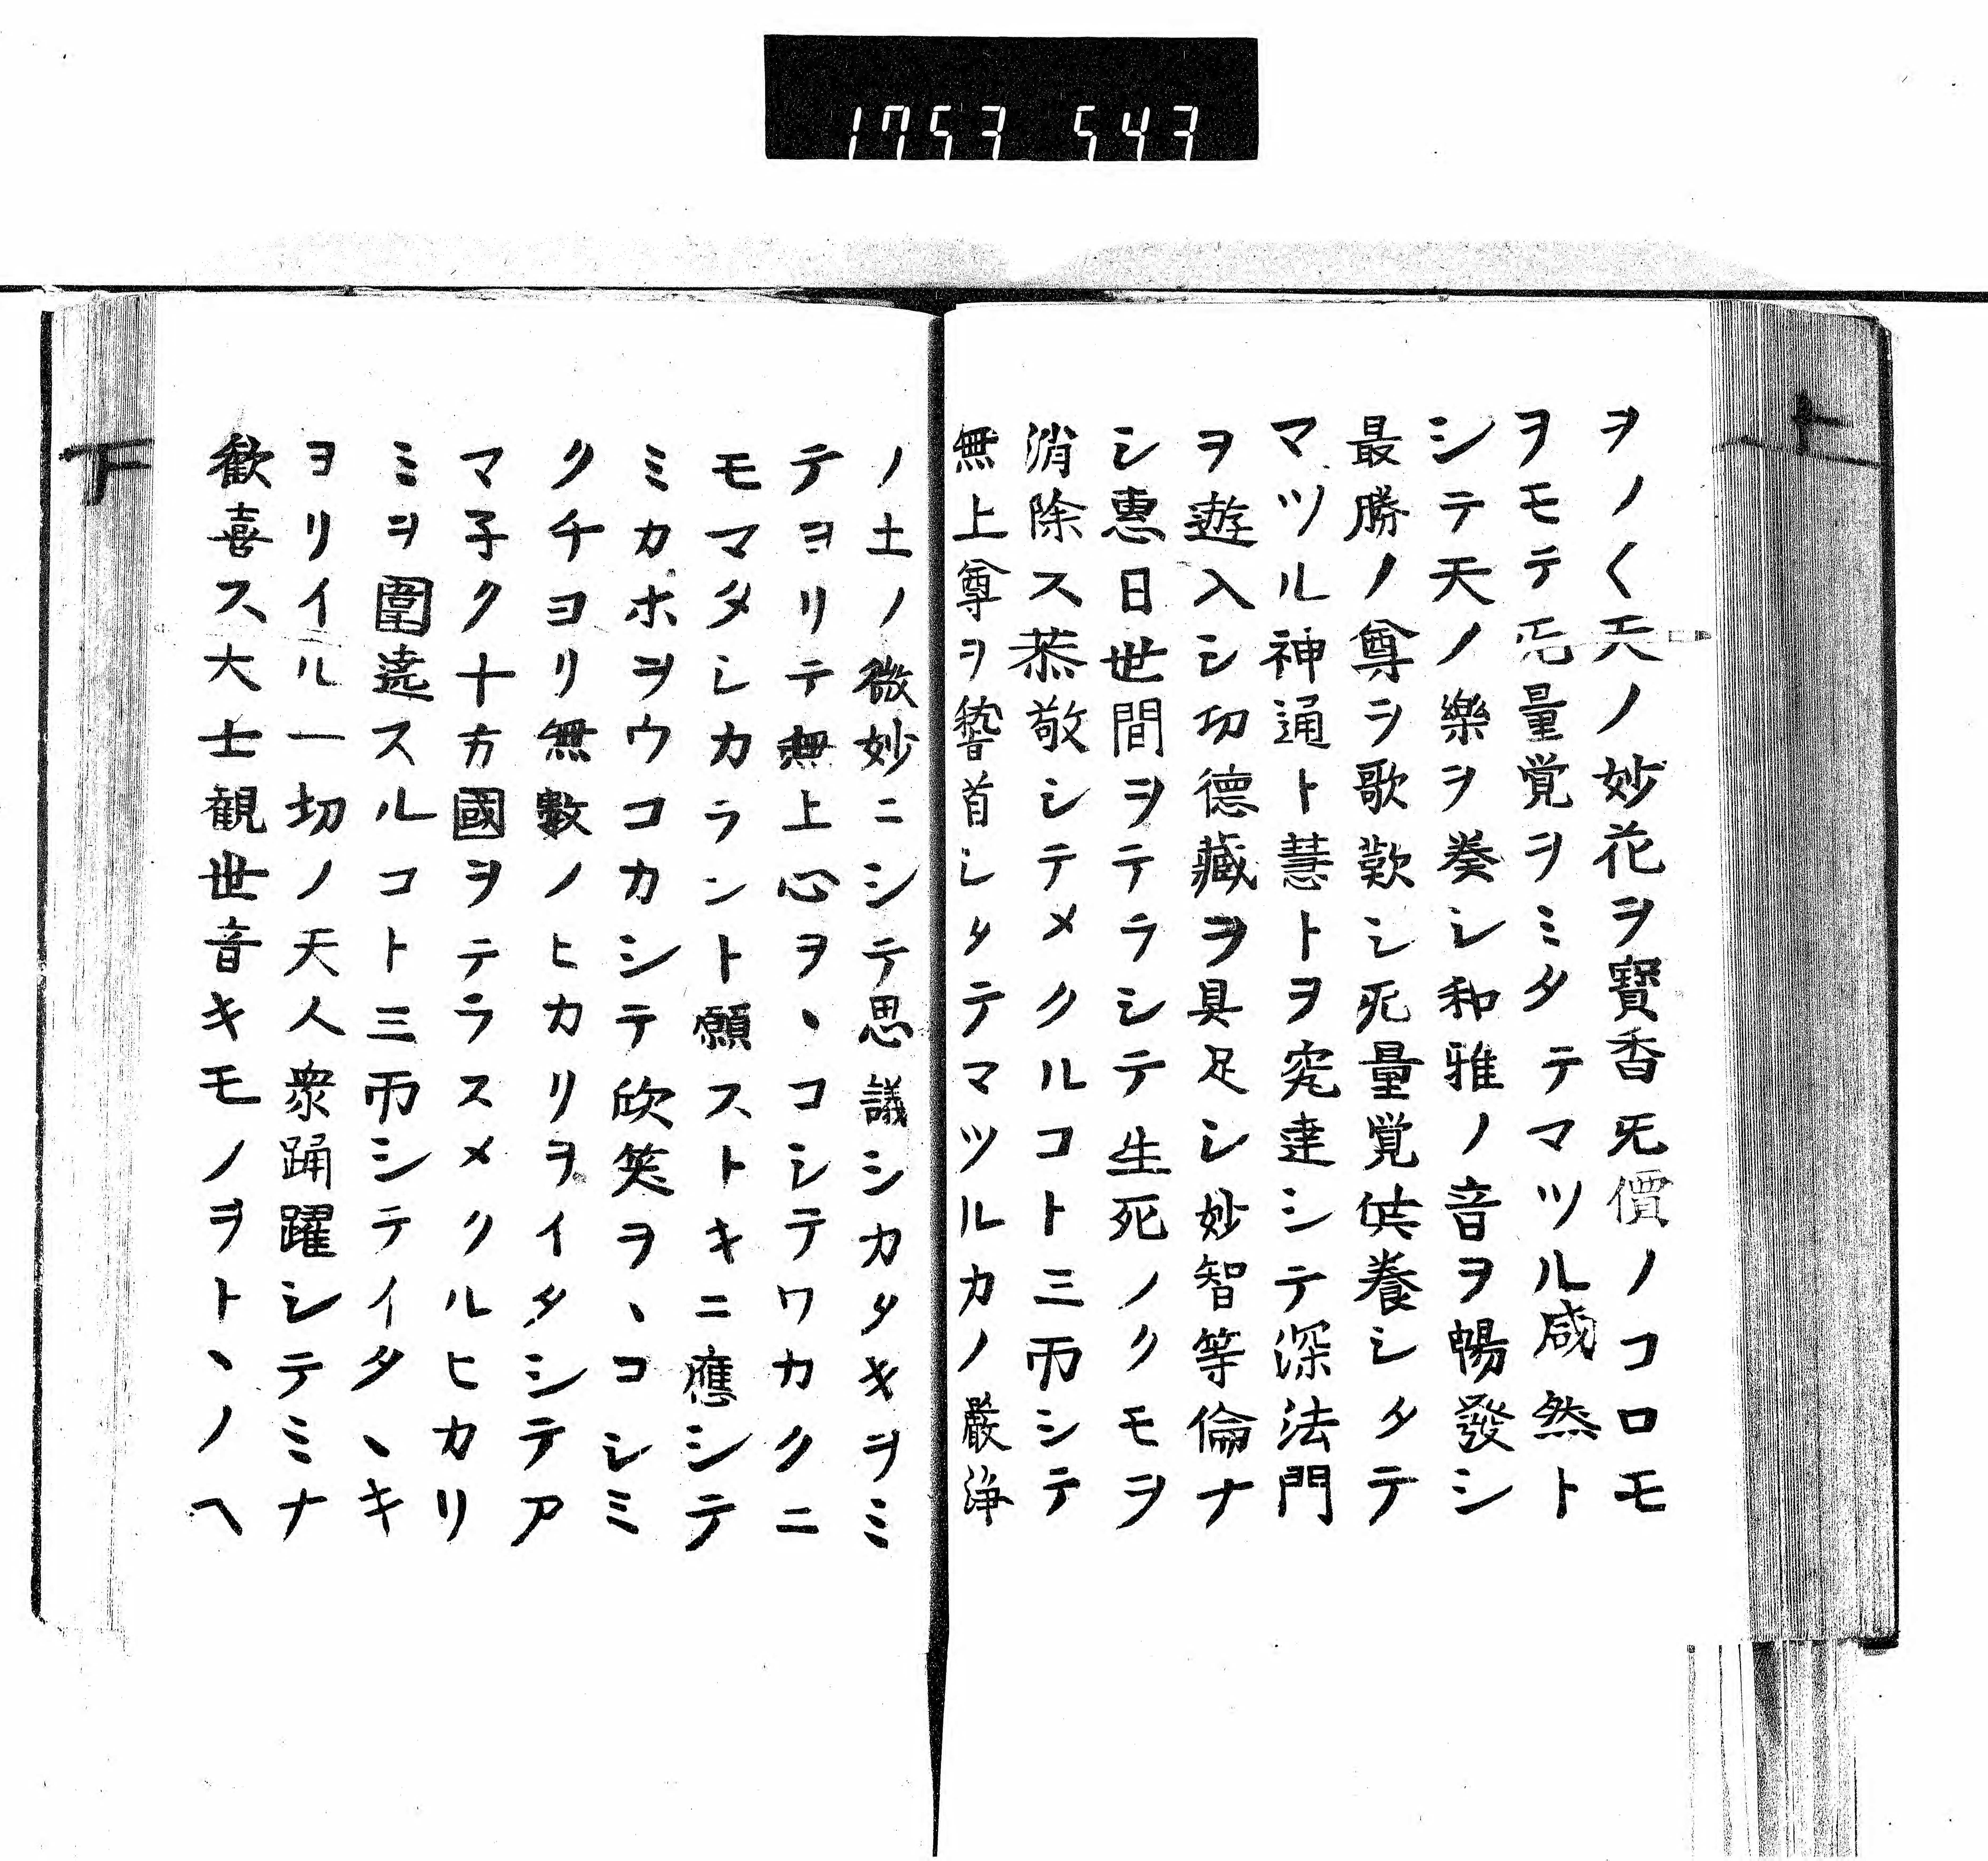 1753 543
ヲノ〱天ノ妙花ヲ寳香旡價ノコロモ
ヲモテ旡量覚ヲミタテマツル咸然ト
シテ天ノ樂ヲ奏シ和雅ノ音ヲ暢發シ
最勝ノ尊ヲ歌歎シ旡量覚供養シタテ
マツル神通ト慧トヲ究達シテ深法門
ヲ遊入シ功德藏ヲ具足シ妙智等倫ナ
シ惠日世間ヲテラシテ生死ノクモヲ
消除ス恭敬シテメクルコト三帀シテ
無上尊ヲ𥡴首シタテマツルカノ嚴淨
ノ土ノ微妙ニシテ思議シカタキヲミ
テヨリテ無上心ヲヽコシテワカクニ
モマタシカラント願ストキニ應シテ
ミカホヲウコカシテ欣笑ヲヽコシミ
クチヨリ無數ノヒカリヲイタシテア
マ子ク十方國ヲテラスメクルヒカリ
ミヲ圍遶スルコト三帀シテイタヽキ
ヨリイル一切ノ天人衆踊躍シテミナ
歡喜ス大士観世音キモノヲトヽノヘ
上
下